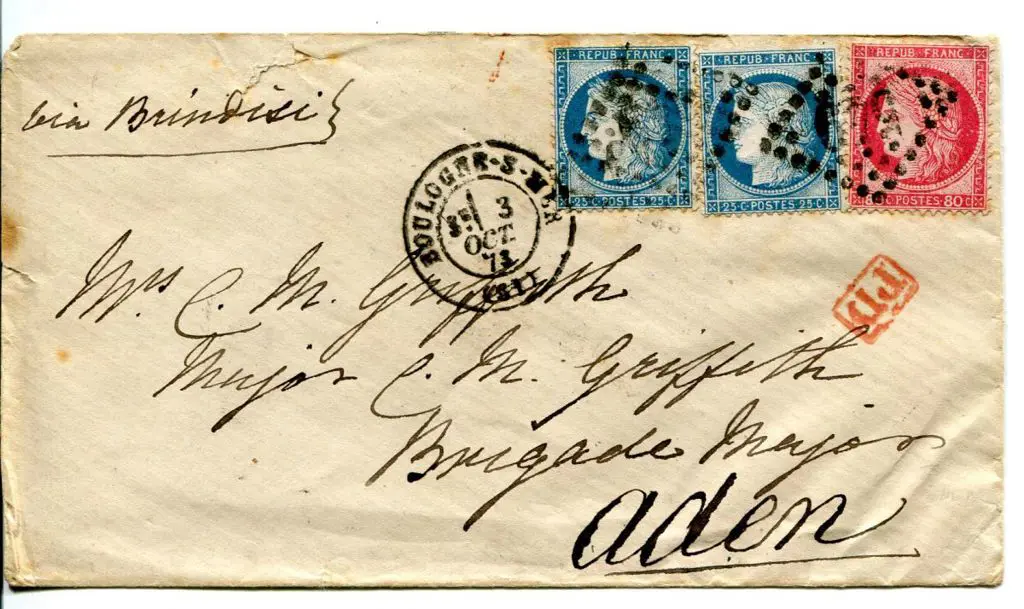 via Brindisi
REPUB·FRANC
25·C·POSTES 25·C·
REPUB·FRANC
25·C·POSTES·25·C·
REPUB·FRANC
80·C·POSTES·80·C
BOULOGNE-S-MER
3
OCT.
73
(61)
Mrs C. M. Griffith
P.D.
Major C. M. Griffith
Brigade Major
Aden